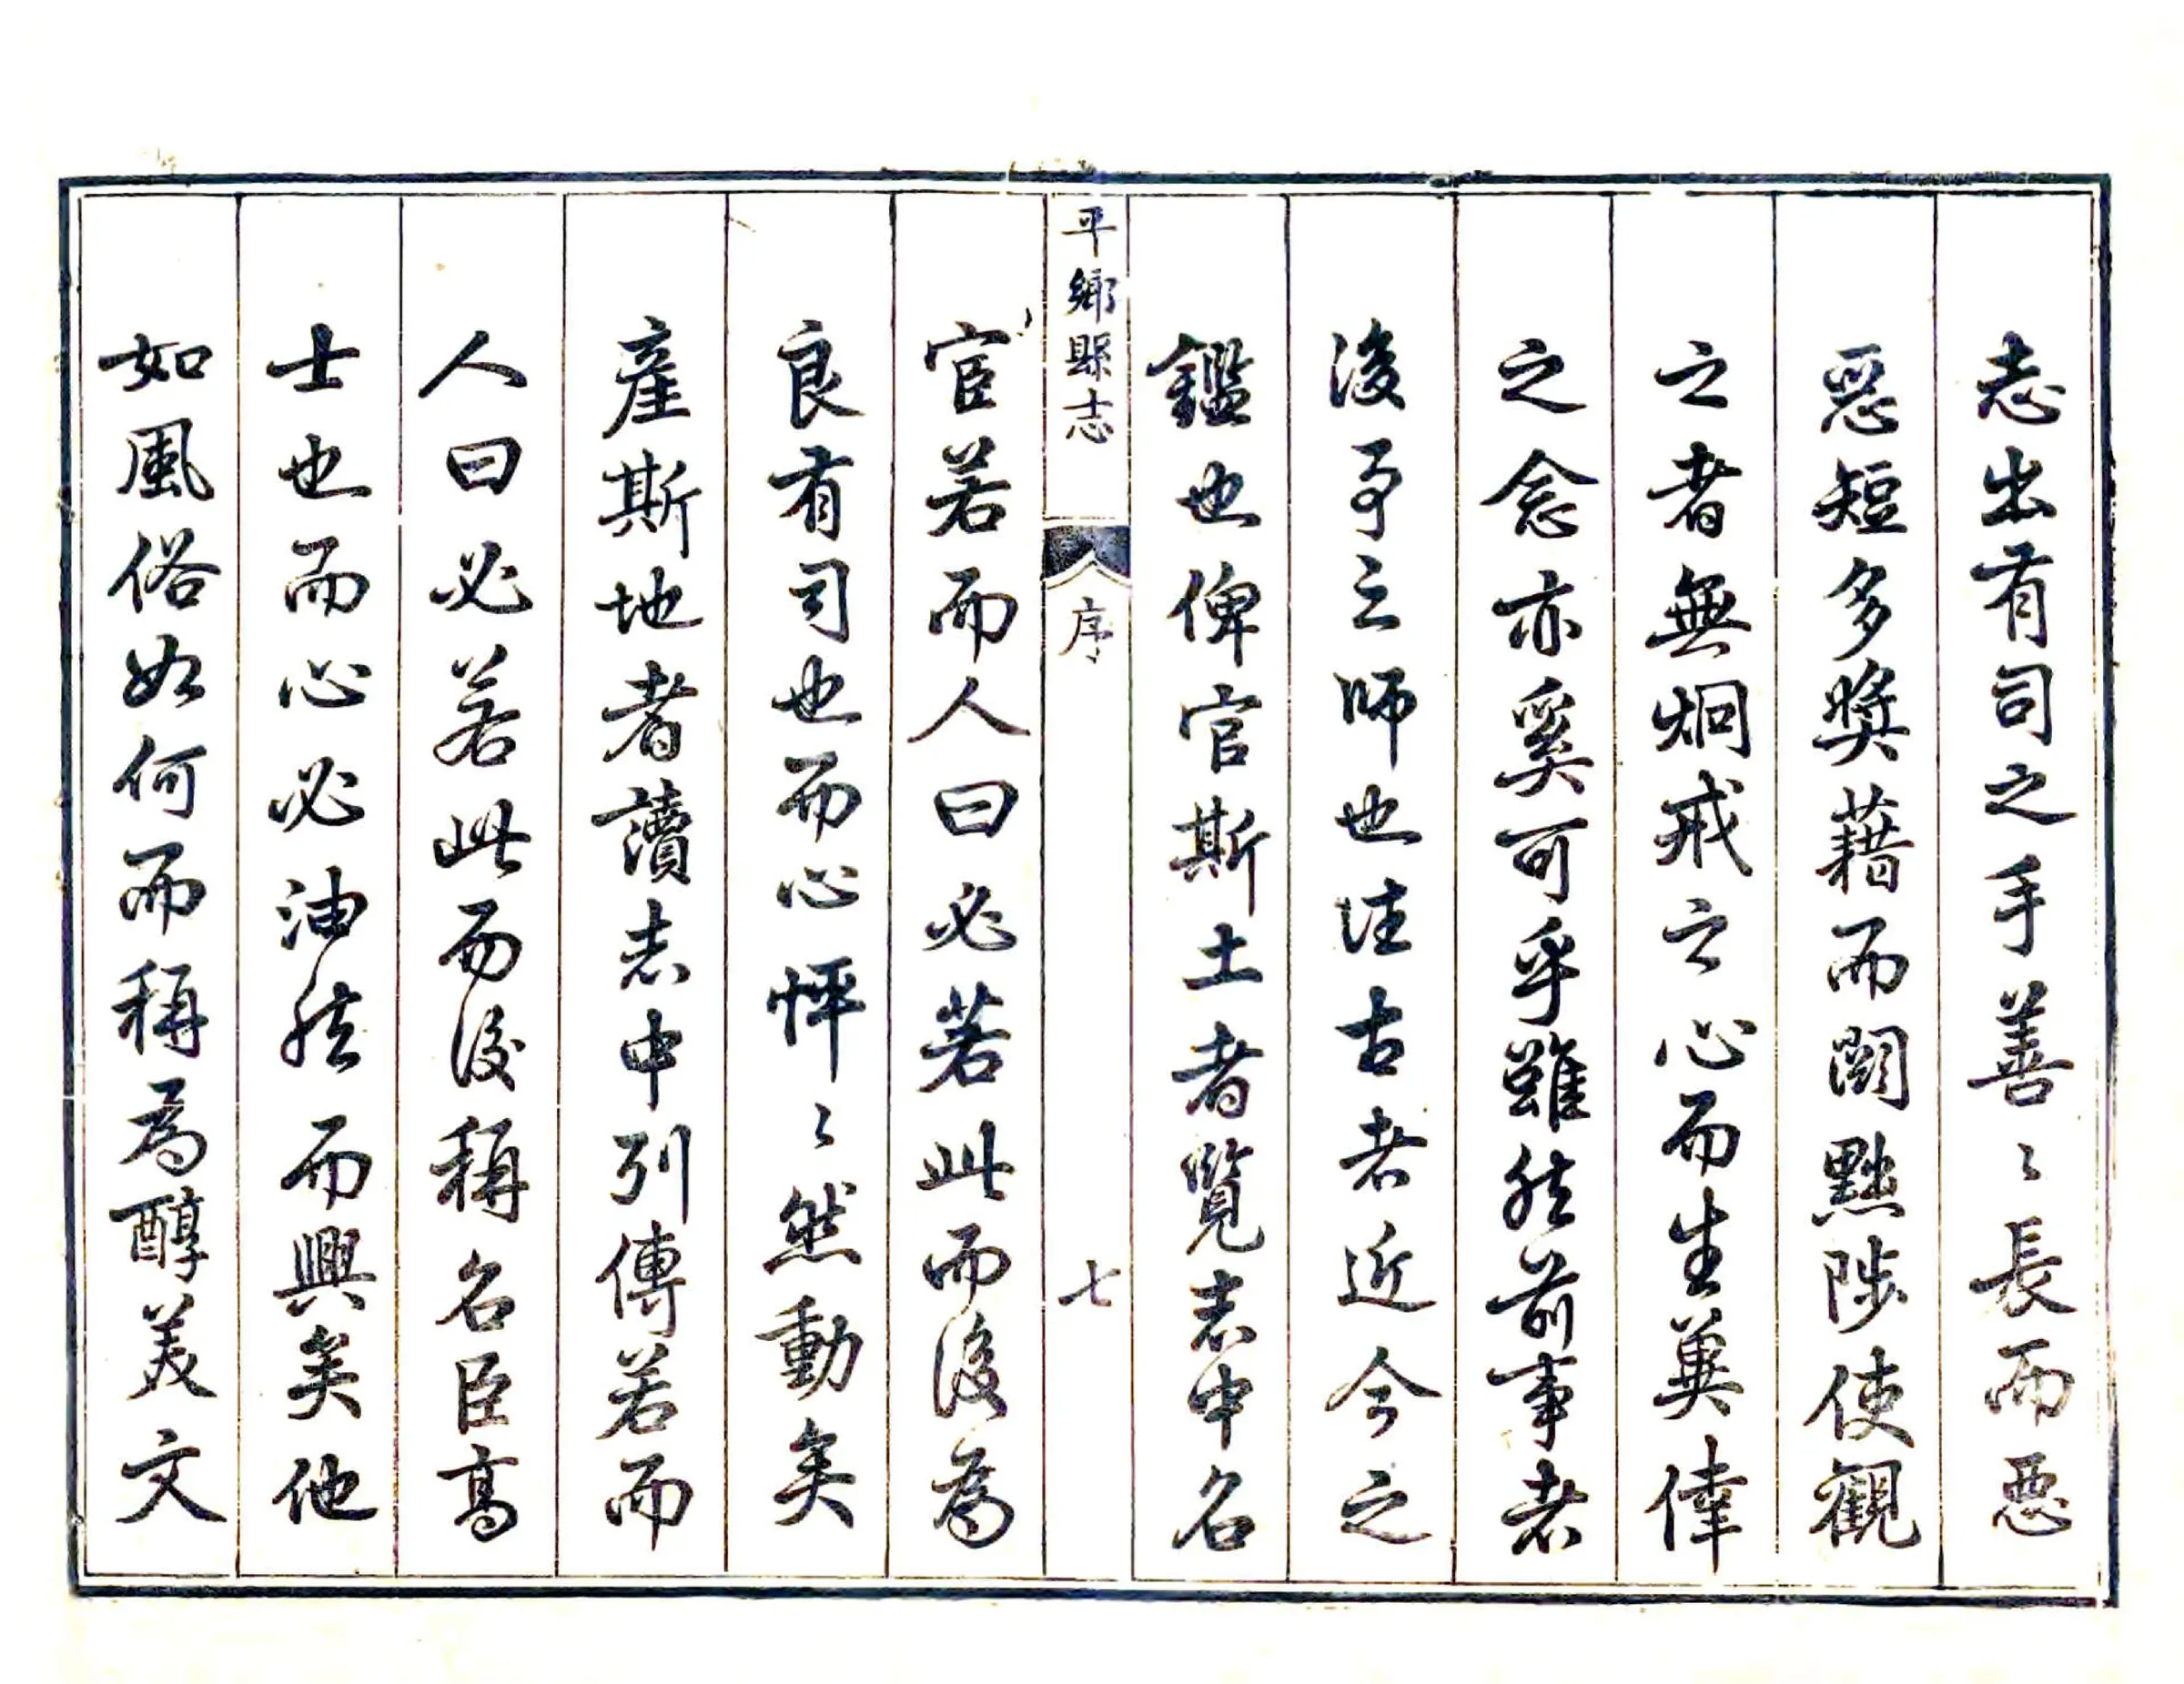 志出有司之手善〻長而惡
惡短多奬藉而闕黜陟使觀
之者無炯戒之心而生冀倖
之念亦奚可乎雖然前事者
後事之師也往古者近今之
鑑也俾官斯土者覽志中名
平鄉縣志
序
七
宦若而人曰必若此而後為
良有司也而心怦〻然動矣
產斯地者讀志中列傳若而
人曰必若此而後稱名臣高
士也而心必油然而興矣他
如風俗如何而稱為醇美文